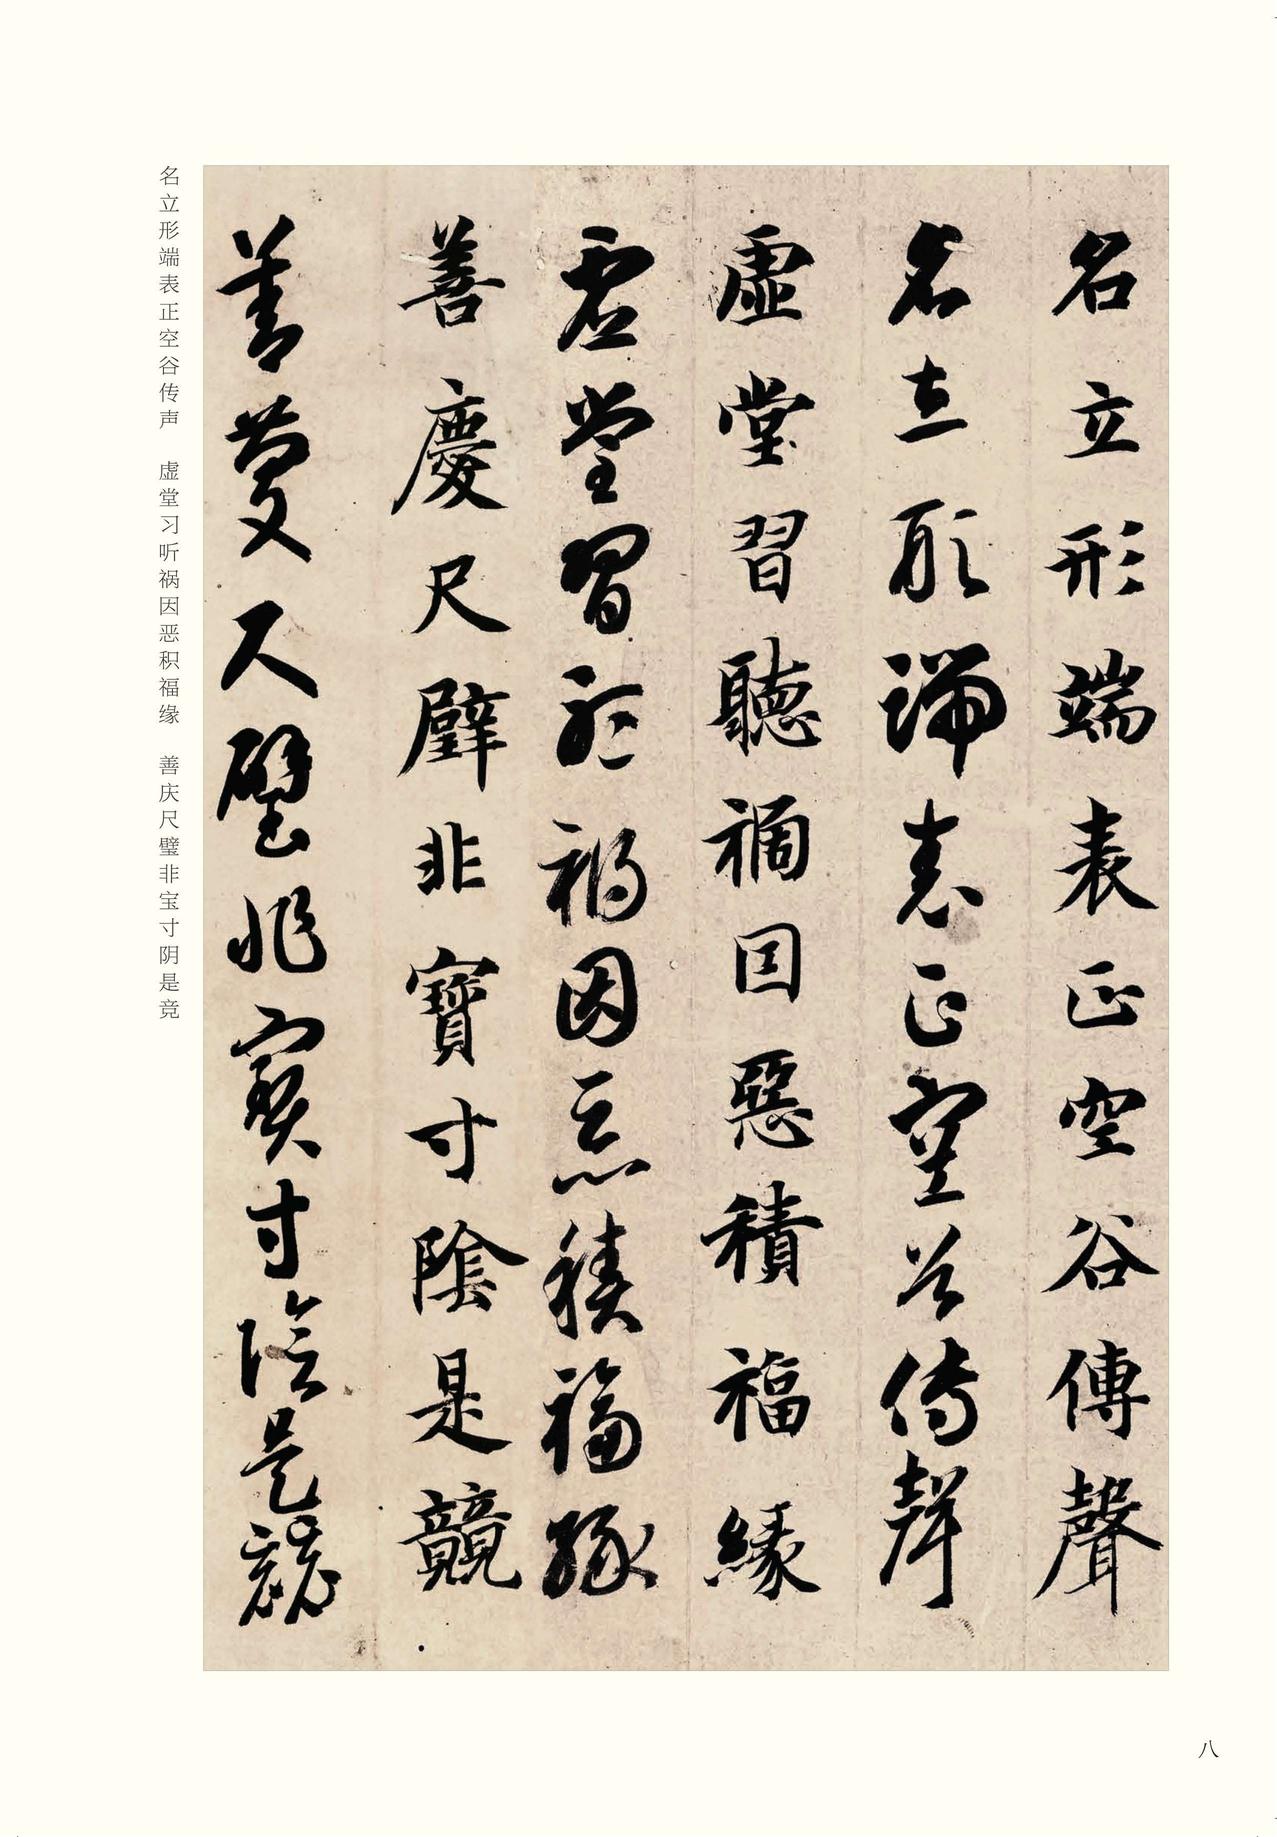 名立形端表正空谷傳聲
名立形端表正空谷傳聲
虛堂習聽禍因惡積福緣
虛堂習聽禍因惡積福緣
善慶尺璧非寶寸陰是競
善慶尺璧非寶寸陰是競
名立形端表正空谷传声 虚堂习听祸因恶积福缘 善庆尺璧非宝寸阴是竞
八